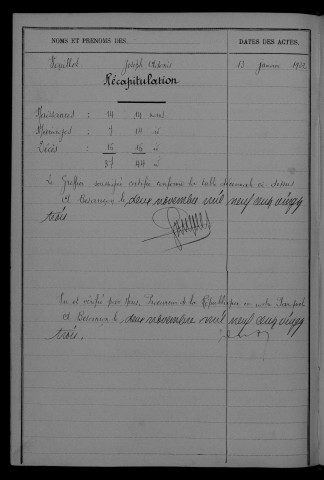 NOMS ET PRÉNOMS DES
DATES DES ACTES.
Joseph
13 janvier
Récapitulation
Naissances : 14 14 noms
Mariages : 7 14 id
Décès : 16 16 id
37 44 id
Le Greffier soussigné certifie conforme la table décennale ci-dessus
à Besançon le deux novembre mil neuf cent vingt
trois
Vu et vérifié par Nous, Procureur de la République, en notre Parquet
à Besançon le deux novembre mil neuf cent vingt
trois.